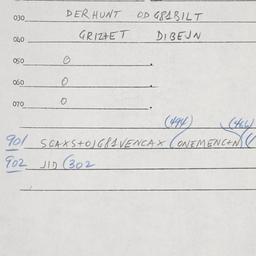 030 DERHUNT OD G81BILT
040 GRIZHET DIBEJN
050 0
060 0
070 0
(494) (466)
901 SGAXS+OJG81VENCAX (ONEMENC+N)(
902 JID (302